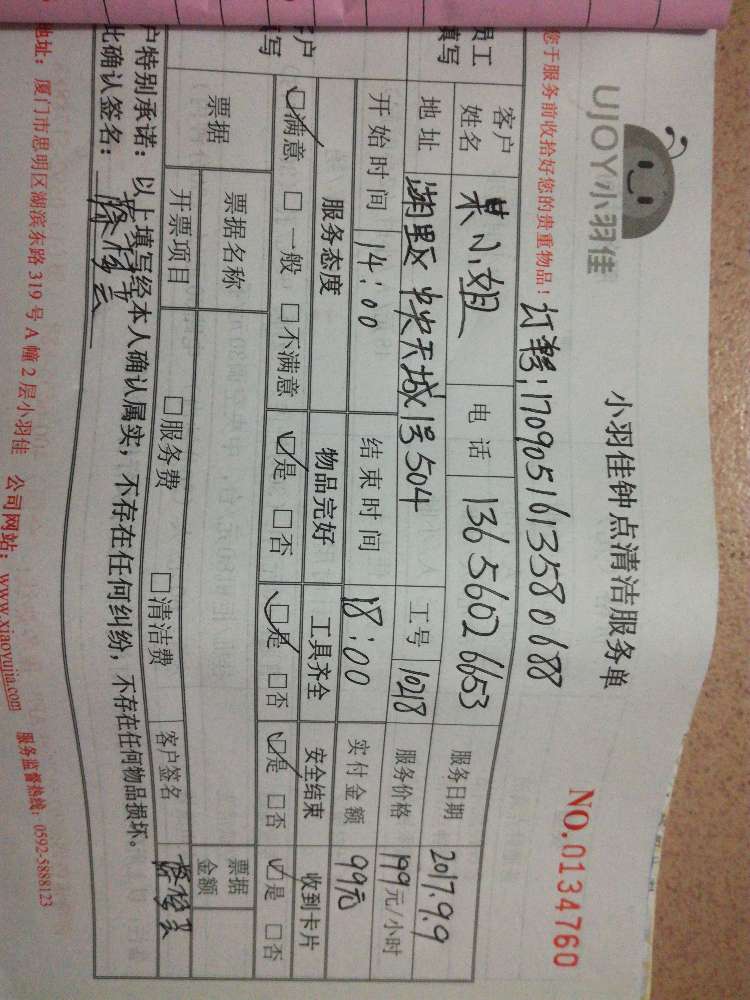 UJOY小羽佳
小羽佳钟点清洁服务单
NO.0134760
您于服务前收拾好您的贵重物品!
1709051613580688
员工
填写
客户
姓名
小姐
电话
13656026653
服务日期
2017.9.9
地址
湖里区中央天城1号504
工号
10218
服务价格
199元/小时
开始时间
14:00
结束时间
18:00
实付金额
99元
户
写
服务态度
物品完好
工具齐全
安全结束
收到卡片
☑满意 □一般 □不满意
☑是 □否
☑是 □否
☑是 □否
☑是 □否
票据
票据名称
票据
金额
开票项目
□服务费
□清洁费
客户签名
户特别承诺:以上填写经本人确认属实,不存在任何纠纷,不存在任何物品损坏。
此确认签名:
地址:厦门市思明区湖滨东路319号A幢2层小羽佳
公司网站:www.xiaoyujia.com
服务监督热线:0592-5888123